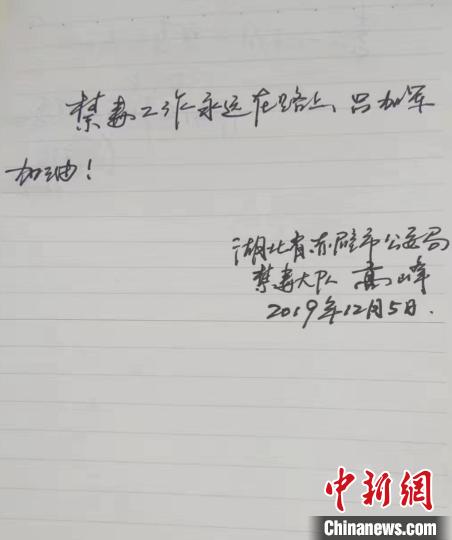 禁毒工作永远在路上、吕加军
加油！
湖北省赤壁市公安局
禁毒大队 高峰
2019年12月5日.
中新网
Chinanews.com